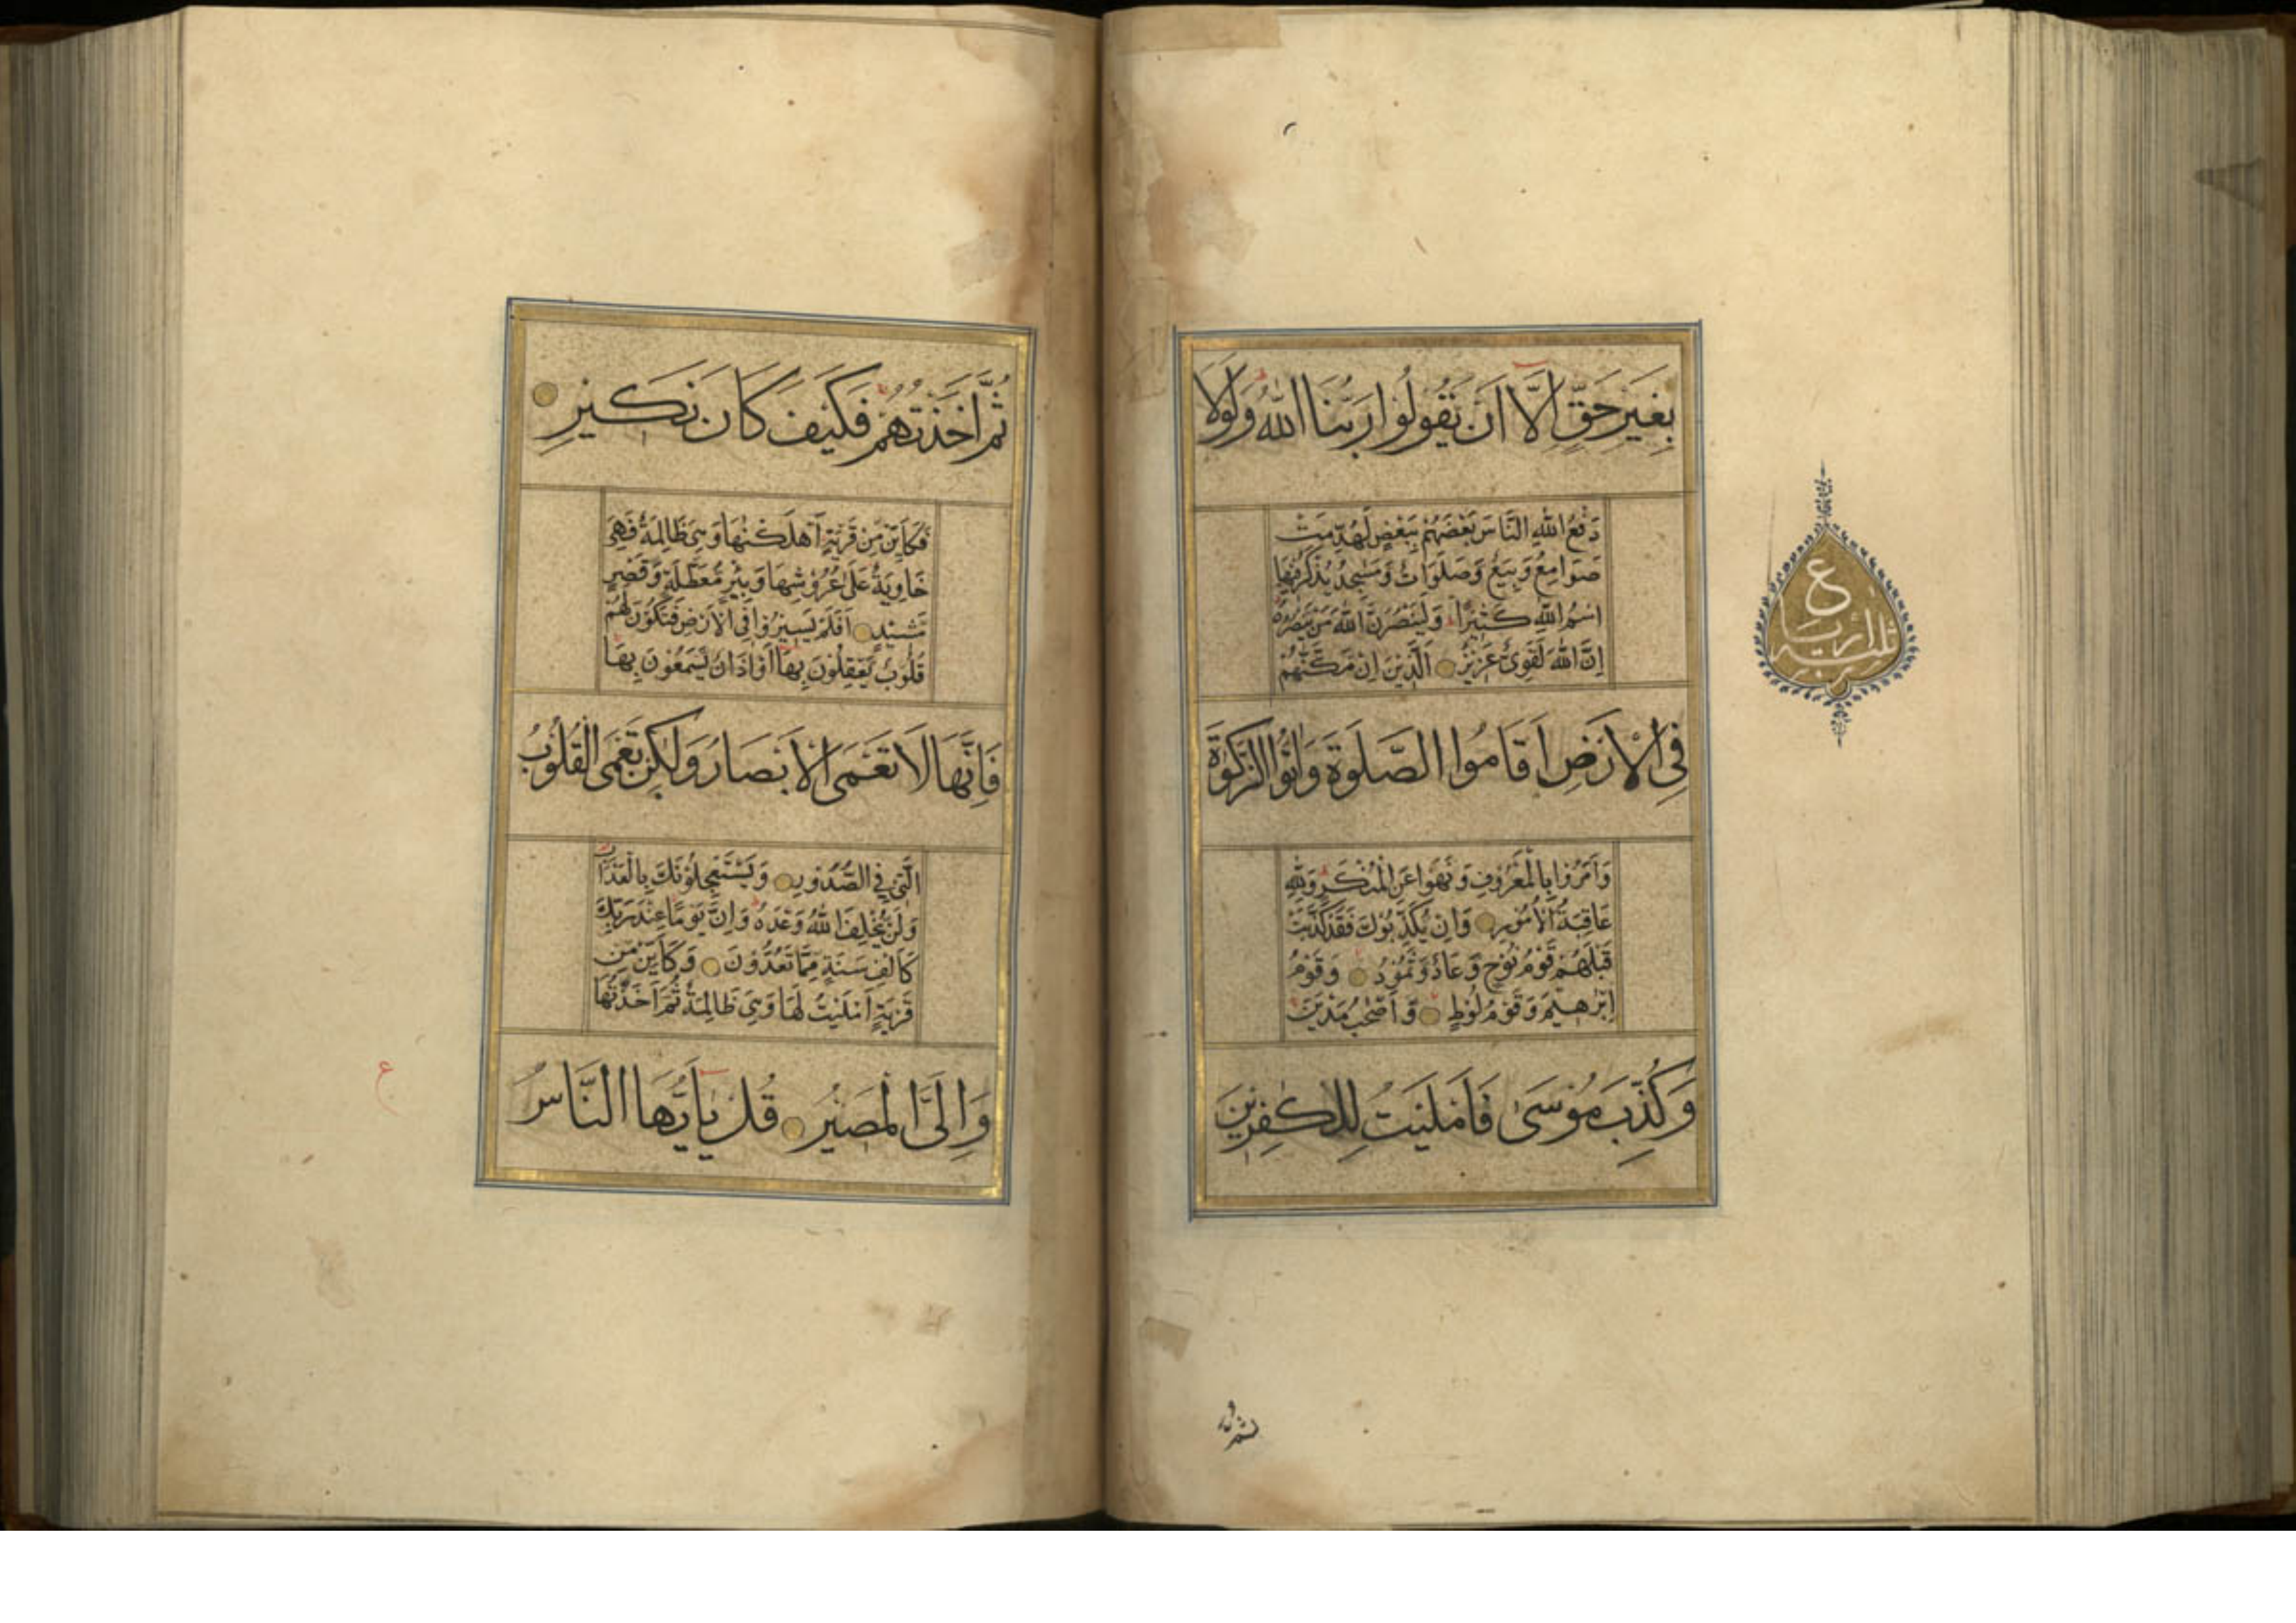 بِغَيْرِ حَقٍّ اِلَّا اَنْ يَقُولُوا رَبُّنَا اللّٰهُ وَلَوْلَا
دَفْعُ اللّٰهِ النَّاسَ بَعْضَهُمْ بِبَعْضٍ لَهُدِّمَتْ
صَوَامِعُ وَبِيَعٌ وَصَلَوَاتٌ وَمَسٰجِدُ يُذْكَرُ فِيهَا
اسْمُ اللّٰهِ كَثِيْرًا وَلَيَنْصُرَنَّ اللّٰهُ مَنْ يَنْصُرُهُ
اِنَّ اللّٰهَ لَقَوِىٌّ عَزِيْزٌ اَلَّذِيْنَ اِنْ مَكَّنّٰهُمْ
فِى الْاَرْضِ اَقَامُوا الصَّلٰوةَ وَاٰتَوُا الزَّكٰوةَ
وَاَمَرُوْا بِالْمَعْرُوْفِ وَنَهَوْا عَنِ الْمُنْكَرِ وَلِلّٰهِ
عَاقِبَةُ الْاُمُوْرِ وَاِنْ يُكَذِّبُوْكَ فَقَدْ كَذَّبَتْ
قَبْلَهُمْ قَوْمُ نُوْحٍ وَّعَادٌ وَّثَمُوْدُ وَقَوْمُ
اِبْرٰهِيْمَ وَقَوْمُ لُوْطٍ وَّاَصْحٰبُ مَدْيَنَ
وَكُذِّبَ مُوْسٰى فَاَمْلَيْتُ لِلْكٰفِرِيْنَ
ع
ثلثة ارباع
ثُمَّ اَخَذْتُهُمْ فَكَيْفَ كَانَ نَكِيْرِ
فَكَاَيِّنْ مِّنْ قَرْيَةٍ اَهْلَكْنٰهَا وَهِىَ ظَالِمَةٌ فَهِىَ
خَاوِيَةٌ عَلٰى عُرُوْشِهَا وَبِئْرٍ مُّعَطَّلَةٍ وَّقَصْرٍ
مَّشِيْدٍ اَفَلَمْ يَسِيْرُوْا فِى الْاَرْضِ فَتَكُوْنَ لَهُمْ
قُلُوْبٌ يَّعْقِلُوْنَ بِهَا اَوْ اٰذَانٌ يَّسْمَعُوْنَ بِهَا
فَاِنَّهَا لَا تَعْمَى الْاَبْصَارُ وَلٰكِنْ تَعْمَى الْقُلُوْبُ
الَّتِىْ فِى الصُّدُوْرِ وَيَسْتَعْجِلُوْنَكَ بِالْعَذَابِ
وَلَنْ يُّخْلِفَ اللّٰهُ وَعْدَهُ وَاِنَّ يَوْمًا عِنْدَ رَبِّكَ
كَاَلْفِ سَنَةٍ مِّمَّا تَعُدُّوْنَ وَكَاَيِّنْ مِّنْ
قَرْيَةٍ اَمْلَيْتُ لَهَا وَهِىَ ظَالِمَةٌ ثُمَّ اَخَذْتُهَا
وَاِلَىَّ الْمَصِيْرُ قُلْ يٰاَيُّهَا النَّاسُ
ع